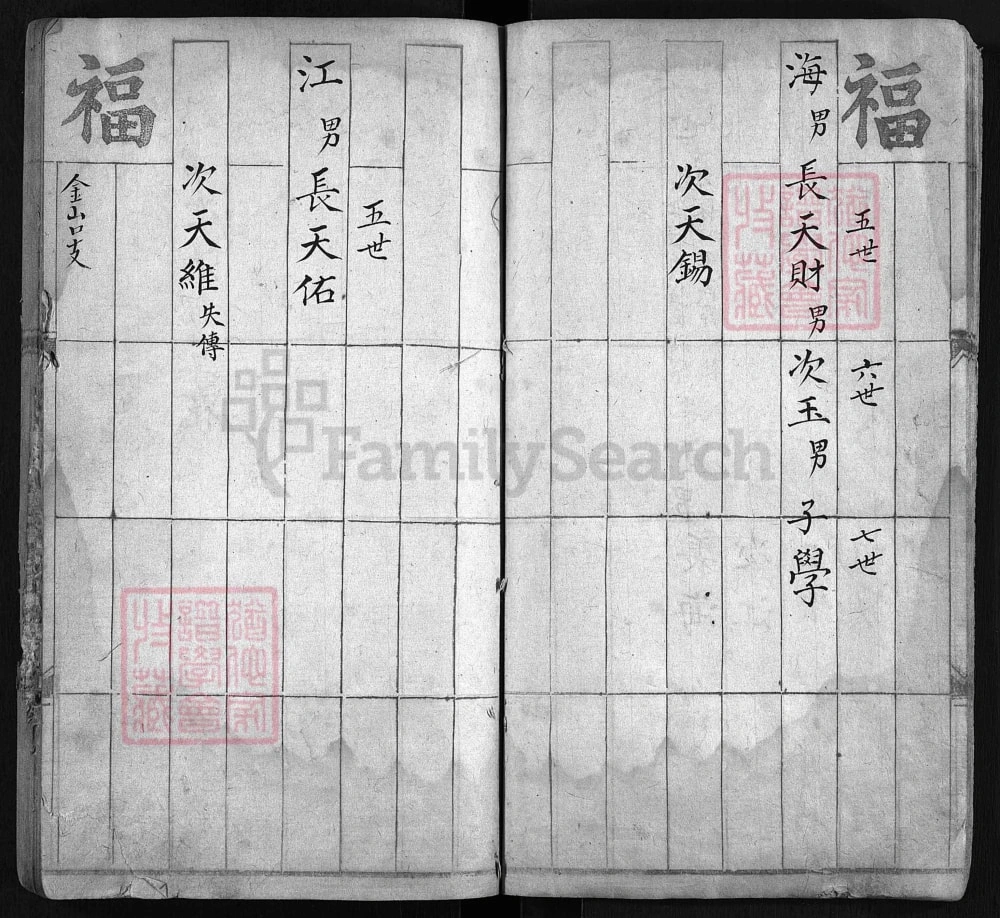 福
五世
六世
七世
海男長天財男次玉男子學
次天錫
五世
江男長天佑
次天維失傳
福
金山口支
FamilySearch